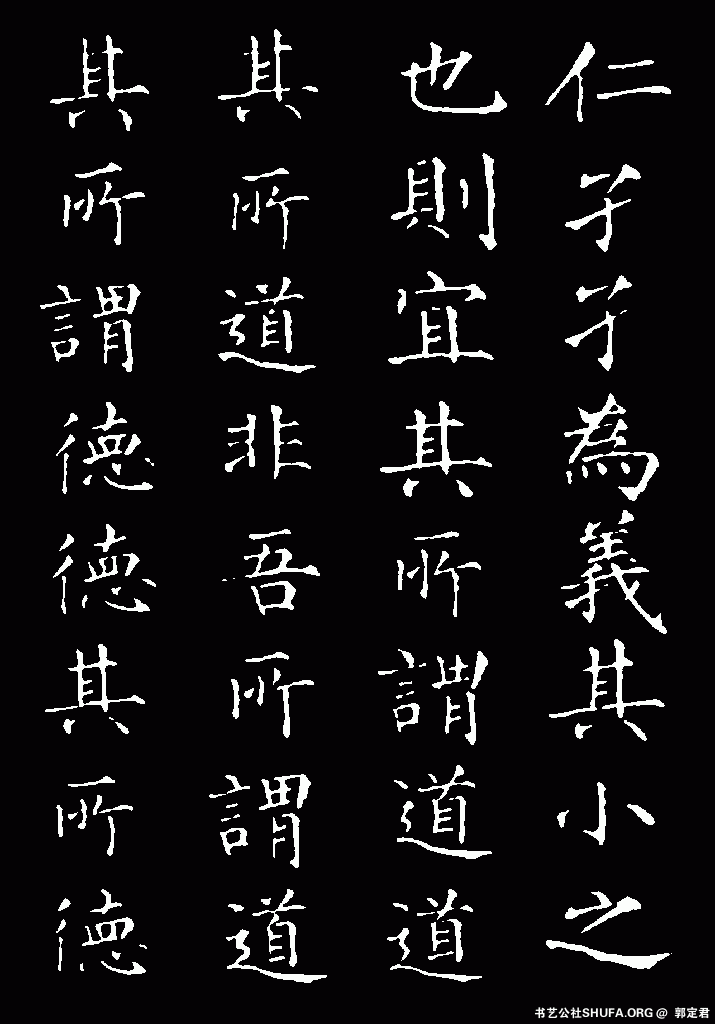 仁孑孑為義其小之
也則宜其所謂道道
其所道非吾所謂道
其所謂德德其所德
书艺公社SHUFA.ORG @ 郭定君